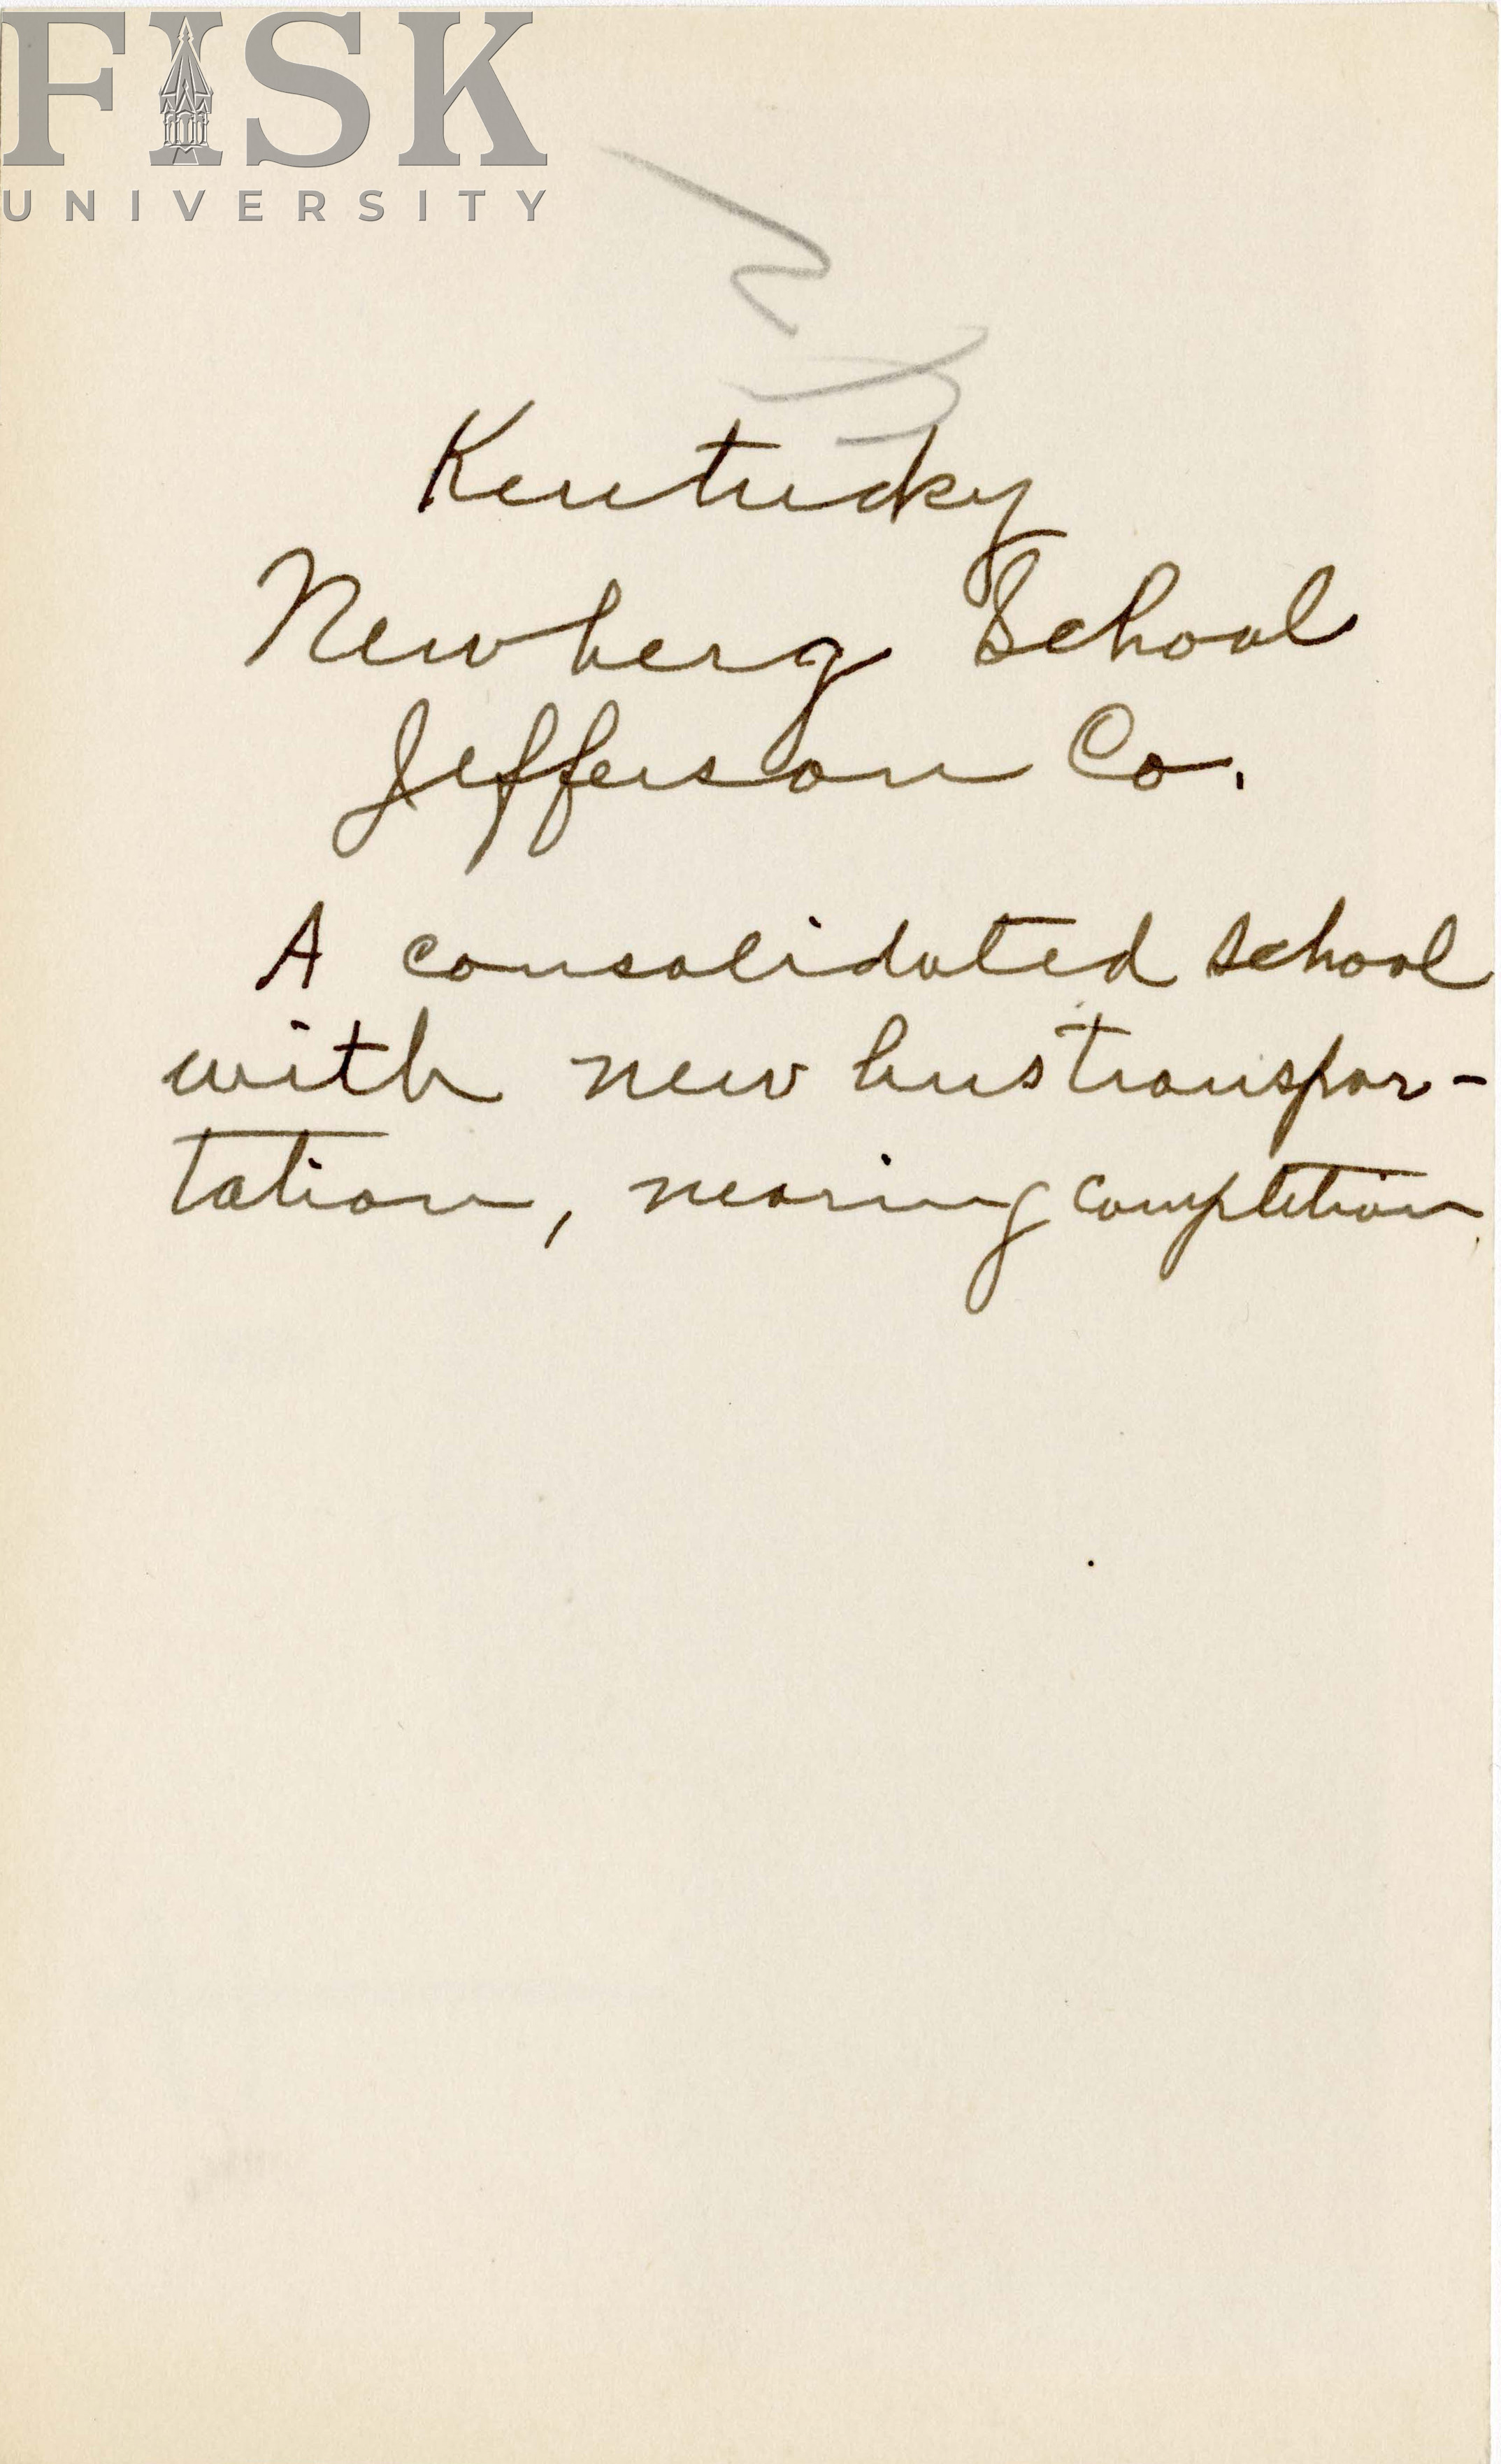 FISK
UNIVERSITY
Kentucky
Newberg School
Jefferson Co.
A consolidated school
with new bus transpor-
tation, nearing completion.